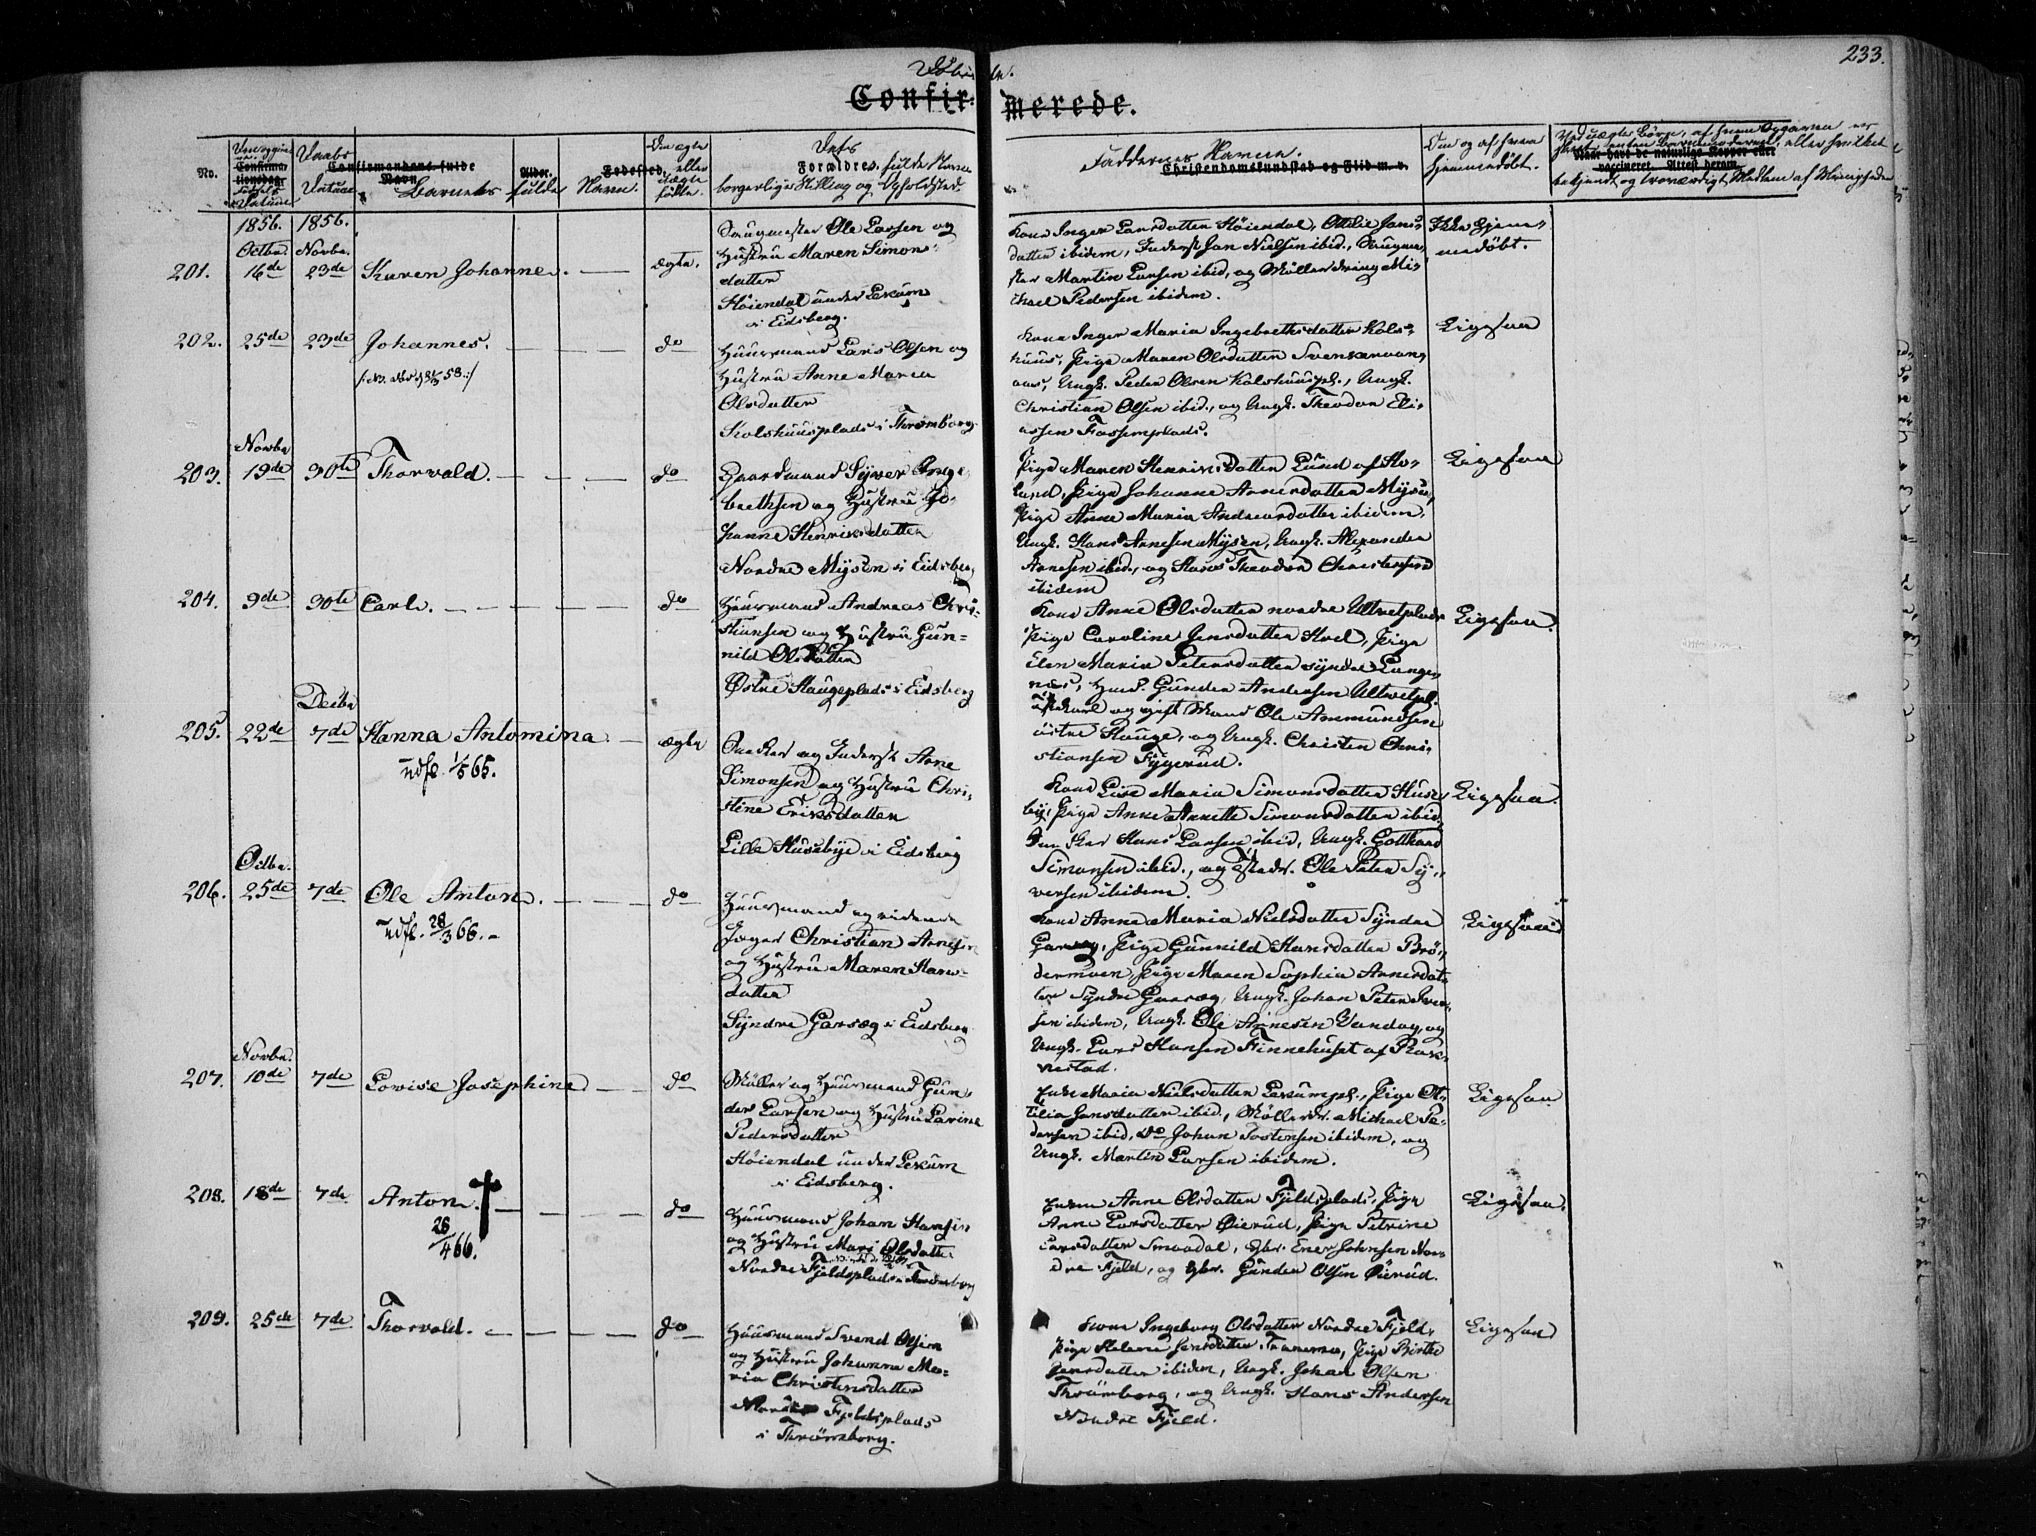 233.
Confir-
merede.
No.
Daabs
Datum
Confirmandens fulde
Navn.
Barnets
fulde
Navn.
Alder.
Fødested.
eller
Dets
Forældres fulde Navne
borgerlige Stilling og Opholdsted.
Faddernes Navne.
Christendomskundskab og Flid m. v.
hjemmedøbt.
Naar havt de naturlige Kopper eller
vaccineret. Attest derom.
1856.
1856.
Octbr.
Novbr.
201.
16de
23de
Karen Johanne.
ægte.
Saugmester Ole Larsen og
Hustru Maren Simons-
datter
Høiendal under Lekum
i Eidsberg.
Kone Inger Larsdatter Høiendal, Ottilie Jans-
datter ibidem, Inderst Jan Nielsen ibid., Saugme-
ster Martin Larsen ibid, og Møllerdreng Mi-
chael Pedersen ibidem.
Ikke hjem-
medøbt.
202.
25de
23de
Johannes.
do
Huusmand Lars Olsen og
Hustru Anne Maria
Olsdatter
Kolshuusplads i Thrømborg
Kone Inger Maria Ingebrethsdatter Kols-
huus, Pige Maren Olsdatter
Ungk. Peder Olsen Kolshuuspl., Ungk.
Christian Olsen ibid., og Ungk. Theodor Eli-
assen Fossemplads.
Ligesaa
Novbr
203.
19de
30te
Thorvald.
do
Gaardmand Syver Inge-
brethsen og Hustru Jo-
hanne Henriksdatter
Nordre Mysen i Eidsberg
Pige Maren Henriksdatter Lund af Ho-
land, Pige Johanne Arnesdatter Mysen,
Pige Anne Maria Andreasdatter ibidem,
Ungk. Hans Arnesen Mysen, Ungk. Alexander
Arnesen ibid., og Hans Theodor Christensen
ibidem
Ligesaa
204.
9de
30te
Carl.
do
Huusmand Andreas Chri-
stiansen og Hustru Gun-
nild Olsdatter
Østre Haugeplads i Eidsberg
Kone Anne Olsdatter nordre Ultvetplads
Pige Caroline Jensdatter Hoel, Pige
Elen Maria Petersdatter syndre Lange-
næs, Husm. Gunder Andersen Ultvetpl.
og gift Mand Ole Ammundsen
østre Hauge, og Ungk. Christen Chri-
stiansen Fyggerud.
Ligesaa.
Decbr
205.
22de
7de
Hanna Antomina
udfl. 1/5 65.
ægte
Snedker og Inderst Arne
Simonsen og Hustru Chri-
stine Eriksdatter
Lille Husebye i Eidsberg
Kone Lise Maria Simonsdatter Huse-
bye, Pige Anne Annette Simonsdatter ibid.
Hans Larsen ibid, Ungk. Gotthard
Simonsen ibid., og Ole Peter Sy-
versen ibidem.
Ligesaa.
Octbr.
206.
25de
7de
Ole Anton.
udfl. 28/3 66.
do
Huusmand og ridende
Jæger Christian Arnesen
og Hustru Maren Hans-
datter
Syndre Garseg i Eidsberg
Kone Anne Maria Nielsdatter Syndre
Garseg, Pige Gunnild Hansdatter Brø-
dermoen, Pige Maren Sophia Arnesdat-
ter Syndre Garseg, Ungk. Johan Peter Iver-
sen ibidem, Ungk. Ole Arnesen Vandug, og
Ungk. Lars Hansen Finnehuset af Rak-
kestad.
Ligesaa
Novbr.
207.
10de
7de
Lovise Josephine
do
Møller og Huusmand Gun-
der Larsen og Hustru Lavine
Pedersdatter
Høiendal under Lekum
i Eidsberg.
Enke Maria Nielsdatter Lekumpl., Pige Ot-
tilia Jansdatter ibid., Møllerdr. Michael Pe-
dersen ibid, do Johan Tostensen ibidem, og
Ungk. Martin Larsen ibidem.
Ligesaa
208.
18de
7de
Anton.
28/4 66.
do
Huusmand Johan Hansen
og Hustru Mari Olsdatter
Nordre Fjeldsplads i Trømborg
Enken Anne Olsdatter Fjeldsplads, Pige
Anne Larsdatter Øierud, Pige Petrine
Larsdatter Smaadal, Gbr. Ener Johnsen Nor-
dre Fjeld, og Gbr. Gunder Olsen Øierud.
Ligesaa.
209.
25de
7de
Thorvald.
do
Huusmand Svend Olsen
og Hustru Johanna Ma-
ria Christensdatter
Nordre Fjeldsplads
i Thrømborg.
Kone Ingeborg Olsdatter Nordre Fjeld,
Pige Helene Jensdatter Pige Birthe
Jensdatter ibidem, Ungk. Johan Olsen
Thrømborg, og Ungk. Hans Andersen
Nordre Fjeld.
Ligesaa